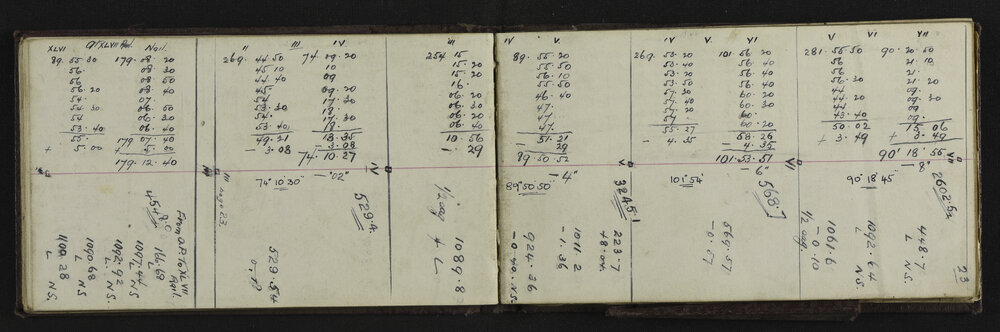 XLVI
XLVII
Nail.
89. 55. 30
179. 08. 20
56.
08. 30
56.
08. 50
56. 20
08. 40
54.
07
54. 30
06. 50
54
06. 20
53. 40
06. 40
55.
179 07. 40
+ 5. 00
+ 5. 00
179. 12. 40
II
III
IV
269. 44. 50
74. 19. 20
45. 10
10
44. 40
09
45.
09. 20
54
17. 30
53. 30
18.
54
17. 30
53. 40
18.
49. 21
- 3. 08
- 3. 08
74. 10. 27
74° 10' 30"
- "02"
IV
III
254. 15.
15. 20
15. 20
16.
06. 20
06. 30
06. 20
06. 40
10. 56
29
IV
V.
89. 55. 20
55. 50
56. 10
55. 50
46. 40
47.
47.
47.
51. 21
- 29
89. 50. 52
- 4"
89° 50' 50"
V
IV
V.
VI
269. 53. 20
101 56. 20
53. 40
56. 40
53. 20
56. 40
53. 50
56. 40
57. 30
60. 20
57. 40
60. 30
57. 20
60.
57.
60. 20
55. 27
58. 26
- 4. 35
- 4. 35
101. 53. 51
- 6"
101° 54'
VI
V
VI
VII
281. 55. 50
90. 20. 50
56
21. 10
56.
21.
56. 30
21. 20
44
09.
44. 20
09. 30
44
09.
43. 40
09.
50. 02
15. 06
+ 3. 49
+ 3. 49
90° 18' 55"
- 8"
90° 18' 45"
VII
From O.P. To XLVII
Nail.
166. 69
L
1097. 44
L N.S.
1092. 92
L N.S.
1090. 68
L N.S.
1100. 28
L N.S.
III
529. 4
529. 54
1/2 way
+ L
1089. 8
3245. 1
223. 7
+8. on.
1011. 2
- 1. 36
924. 36
- 0. 40. N.S.
5687
569. 57
- 0. 57
2602. 52
448. 7
L N.S.
1092. 64
L N.S.
1061. 6
- 0. 10
1/2 way.
23